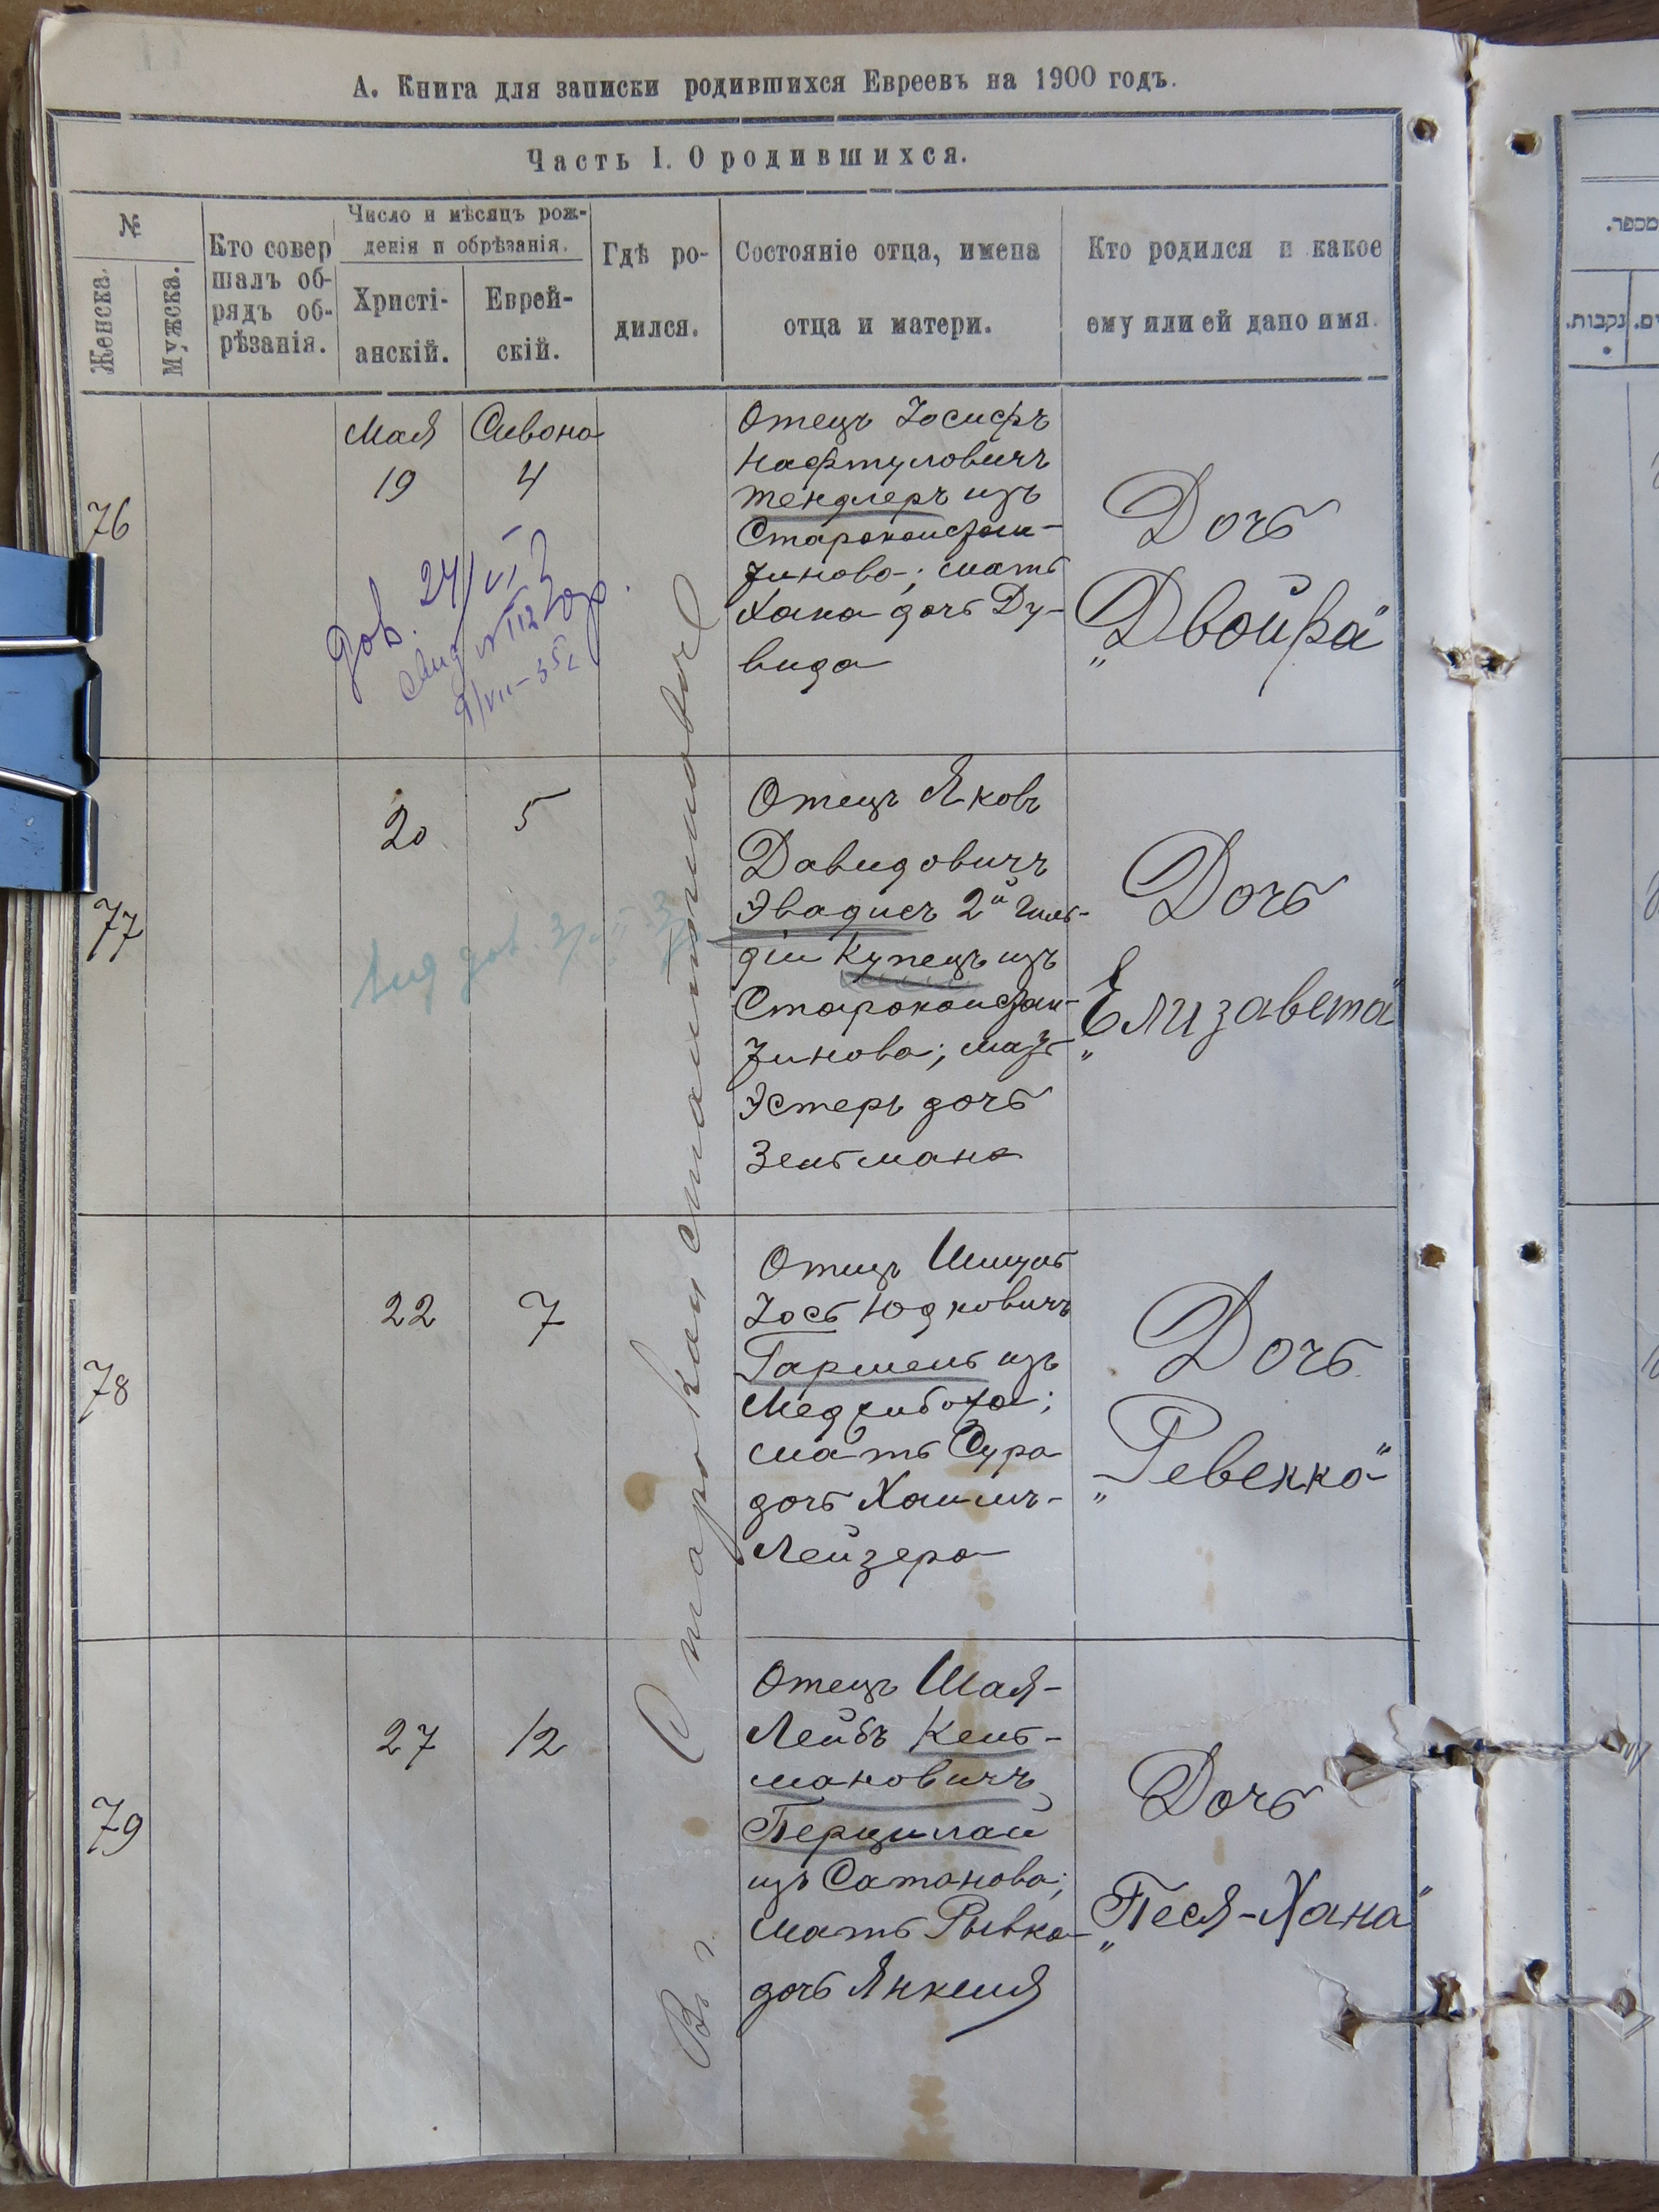 А. Книга для записки родившихся Евреевъ на 1900 годъ.
Часть I. О родившихся.
№
Женска.
Мужска.
Кто совер
шалъ об-
рядъ об-
рѣзанія.
Число и мѣсяцъ рож-
денія и обрѣзанія.
Христі-
анскій.
Еврей-
скій.
Гдѣ ро-
дился.
Состояніе отца, имена
отца и матери.
Кто родился и какое
ему или ей дано имя.
76
Мая
19
Сивона
4
Отецъ Іосифъ
Нафтуловичъ
Тендлеръ изъ
Староконстан-
тинова; мать
Хана дочь Ду-
вида
Дочь
„Двойра"
дов. 24/VI
77
20
5
Отецъ Яковъ
Давидовичъ
Эвадисъ 2й Гиль-
діи Купецъ изъ
Староконстан-
тинова; мать
Эстеръ дочь
Зельмана
Дочь
„Елизавета"
78
22
7
Отецъ Шмуль
Іось Юдковичъ
Гармель изъ
Меджибожа;
мать Сура
дочь Хаимъ-
Лейзера
Дочь
„Ревекка"
79
27
12
Отецъ Шая-
Лейбъ Кель-
мановичъ
Перцилай
изъ Сатанова;
мать Рывка
дочь Янкеля
Дочь
„Песя-Хана"
Въ г. Староконстантиновѣ
מספר.
נקבות.